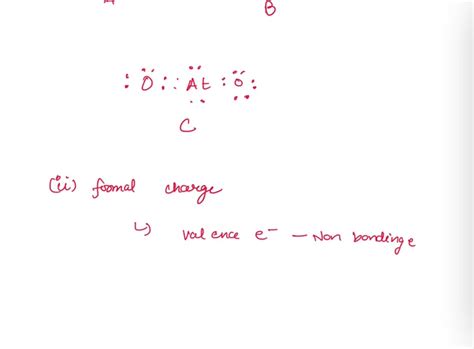 B
:Ö::Ät:Ö:
C
(ii) formal charge
↳ valence e⁻ — Non bonding e